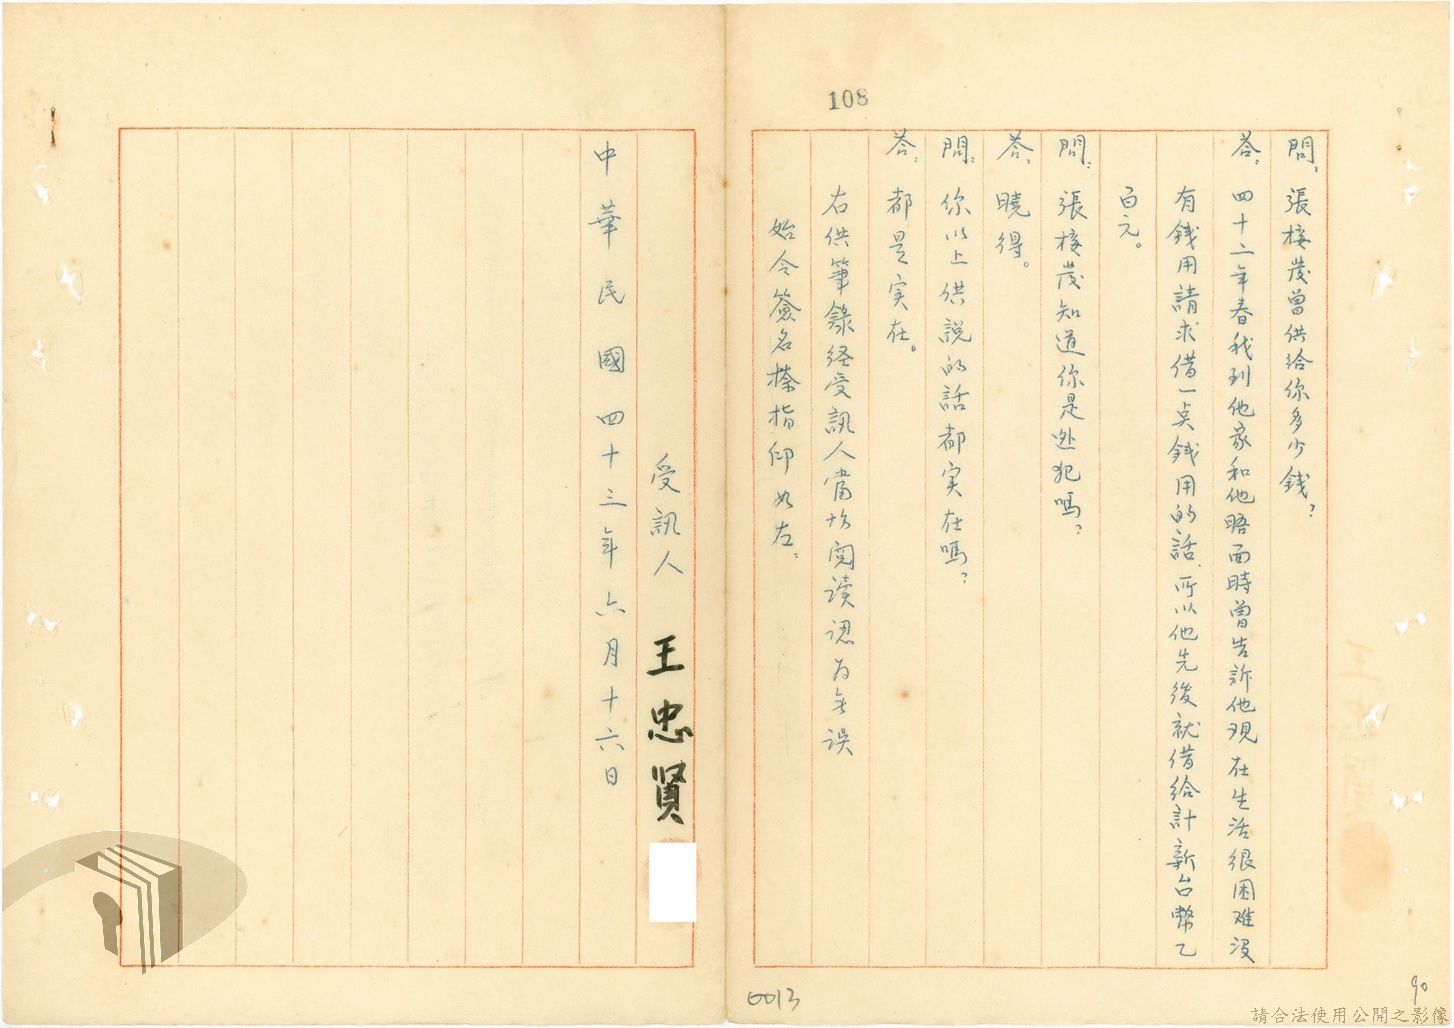 108
問：張棧茂曾供給你多少錢？
答：四十二年春我到他家和他晤面時曾告訴他現在生活很困难沒
有錢用請求借一点錢用的話，所以他先後就借給計新台幣乙
百元。
問：張棧茂知道你是逃犯嗎？
答：曉得。
問：你以上供說的話都实在嗎？
答：都是实在。
右供筆錄経受訊人當場閱读認为无误
始令簽名捺指印如左：
受訊人 王忠賢
中華民國四十三年六月十六日
0013
90
請合法使用公開之影像